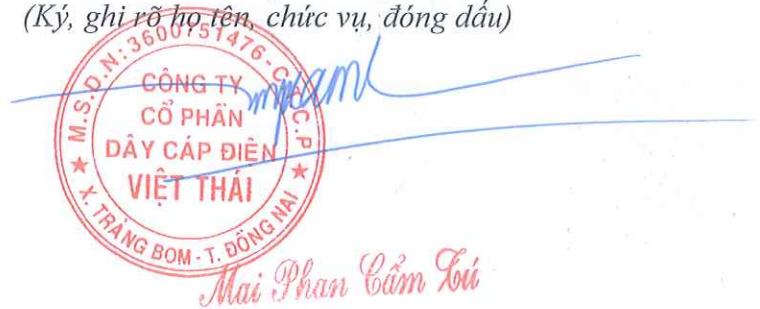 (Ký, ghi rõ họ tên, chức vụ, đóng dấu)
M.S.D.N: 3600751476-C.T.C.P
CÔNG TY
CỔ PHẦN
DÂY CÁP ĐIỆN
VIỆT THÁI
X. TRẢNG BOM - T. ĐỒNG NAI
Mai Phan Cẩm Tú